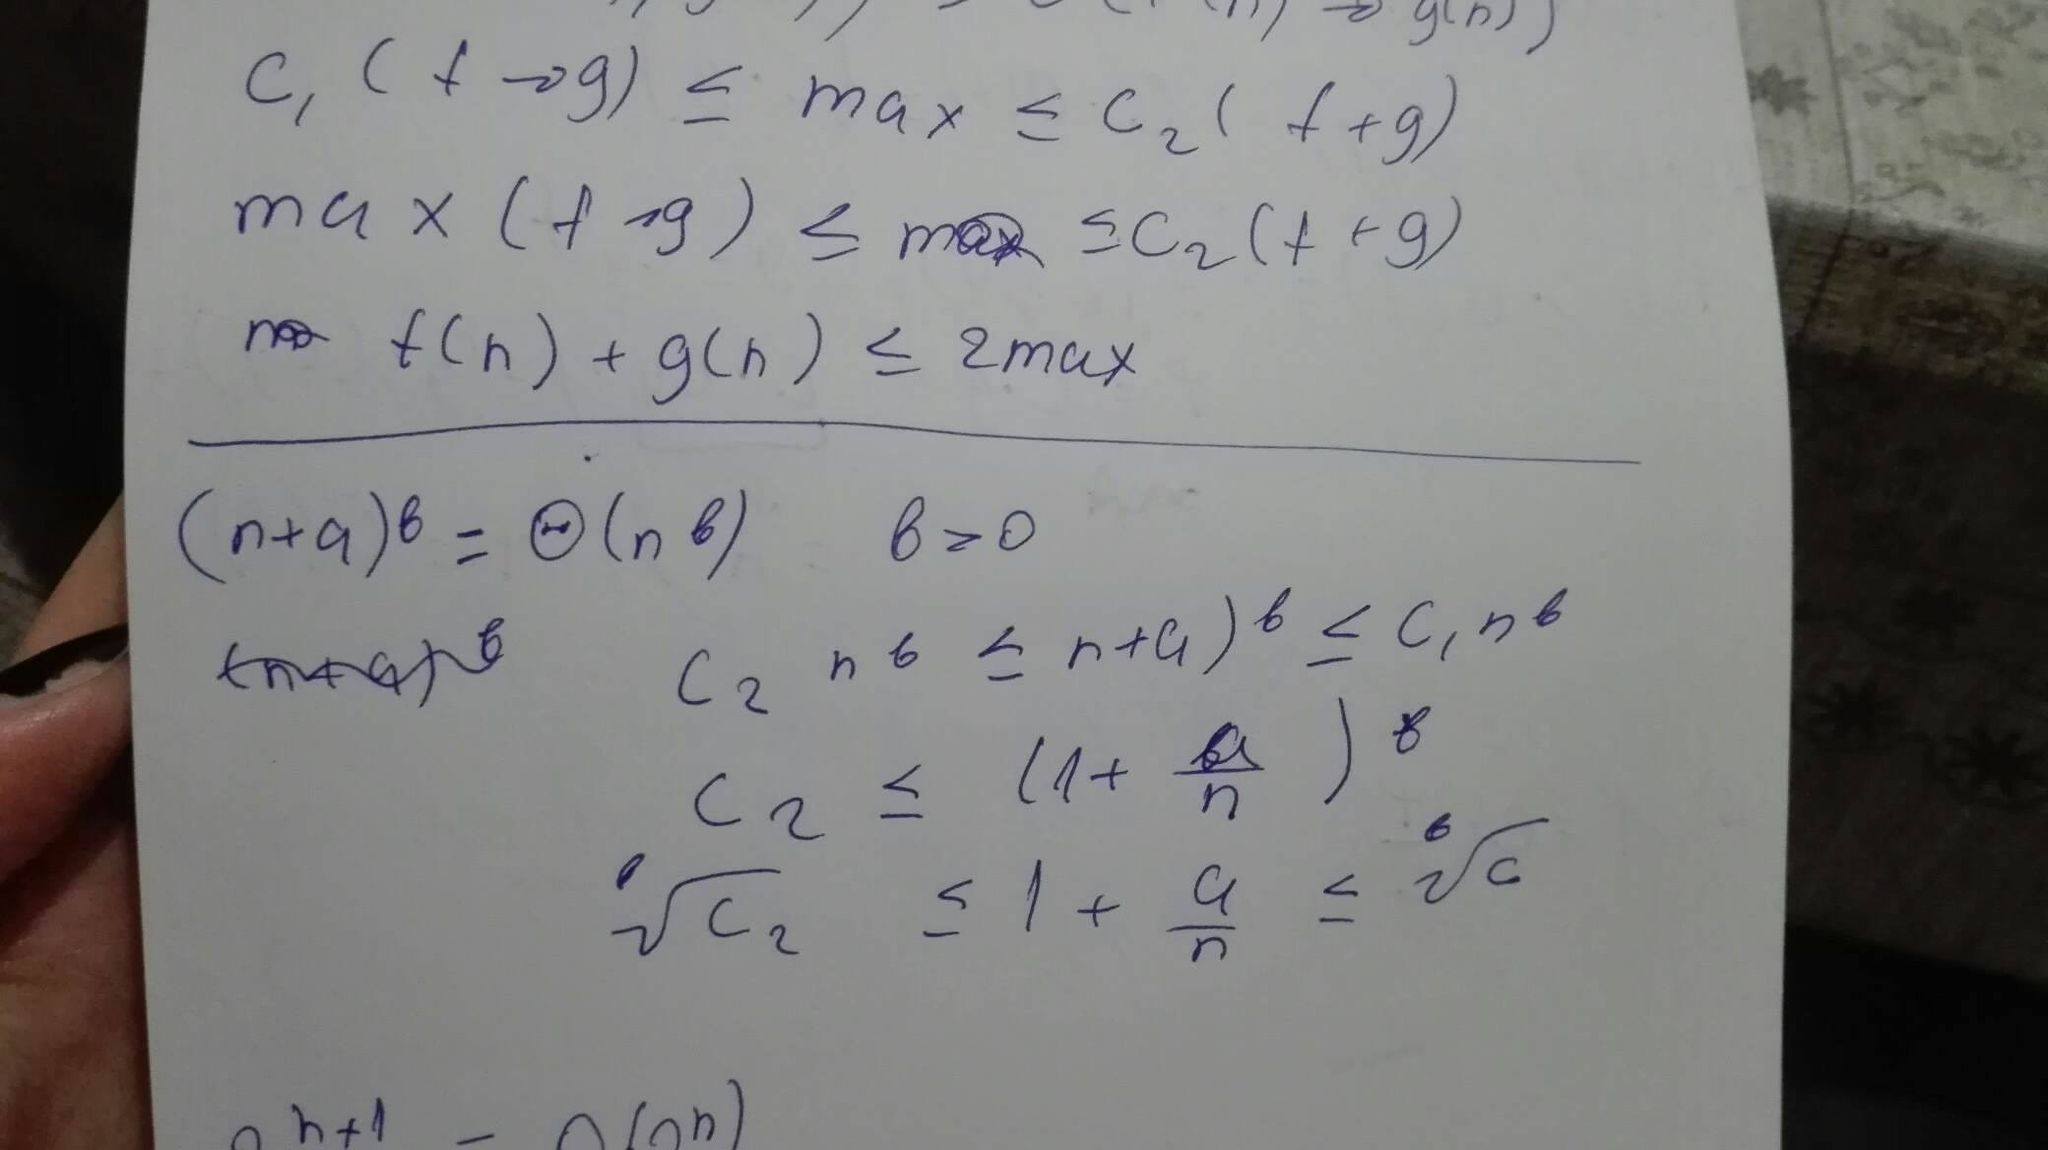 g(n))
C₁ (f + g) ≤ max ≤ C₂ ( f + g)
max (f + g) ≤ max ≤ C₂ (f + g)
f(n) + g(n) ≤ 2max
(n+a)ᵇ = Θ(nᵇ) b > 0
(n+a)ᵇ C₂ nᵇ ≤ n+a)ᵇ ≤ C₁ nᵇ
C₂ ≤ (1 + a/n)ᵇ
ᵇ√C₂ ≤ 1 + a/n ≤ ᵇ√C